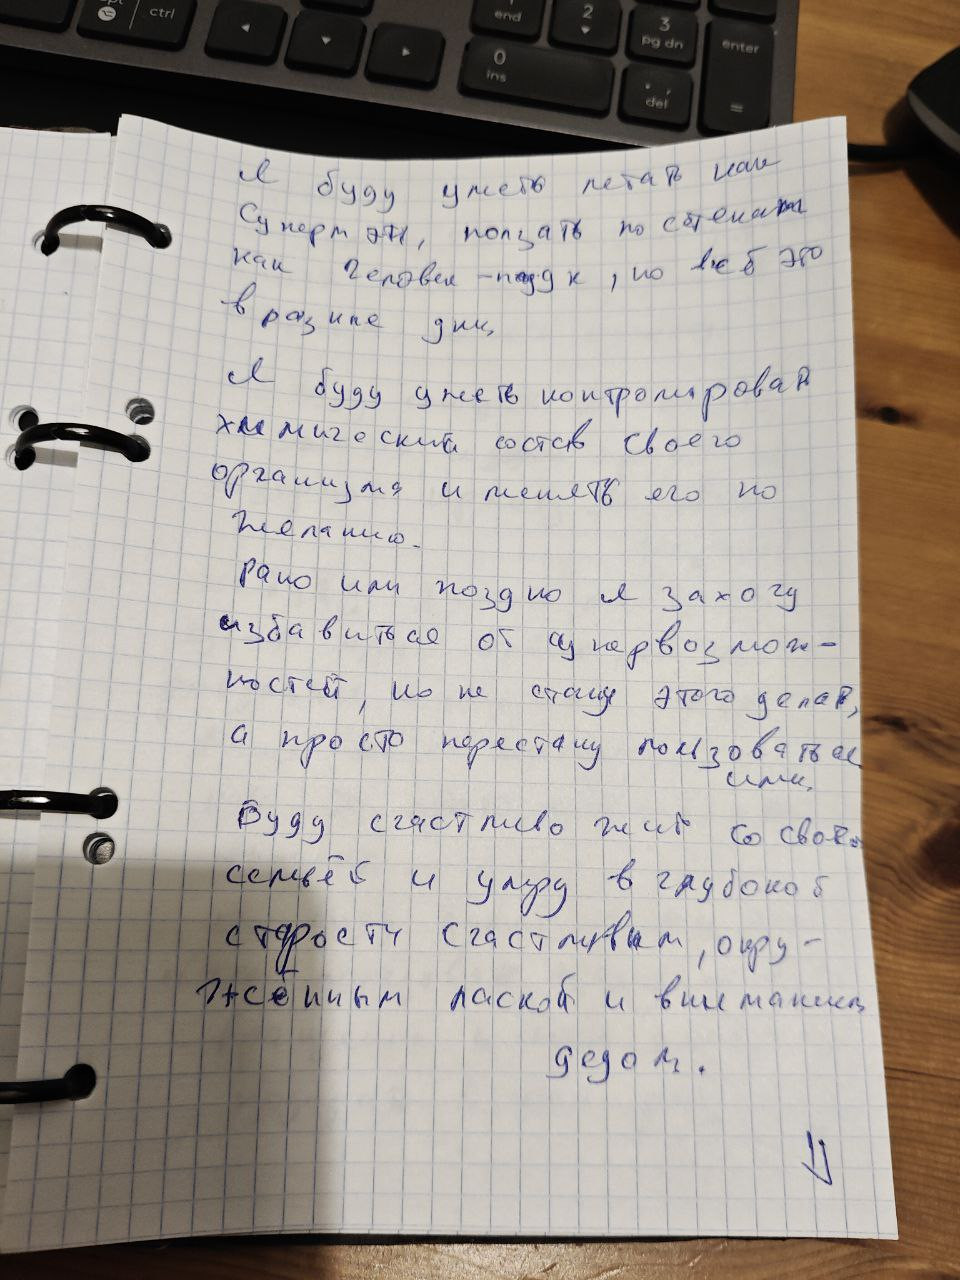 ctrl
end
2
3
pg dn
enter
0
ins
del
=
Я буду уметь летать как
Супермэн, ползать по стенам
как Человек-паук, но всё это
в разные дни.
Я буду уметь контролировать
химический состав своего
организма и менять его по
желанию.
Рано или поздно я захочу
избавиться от супервозмож-
ностей, но не стану этого делать,
а просто перестану пользоваться
ими.
Буду счастливо жить со своей
семьёй и умру в глубокой
старости счастливым, окру-
жённым лаской и вниманием
дедом.